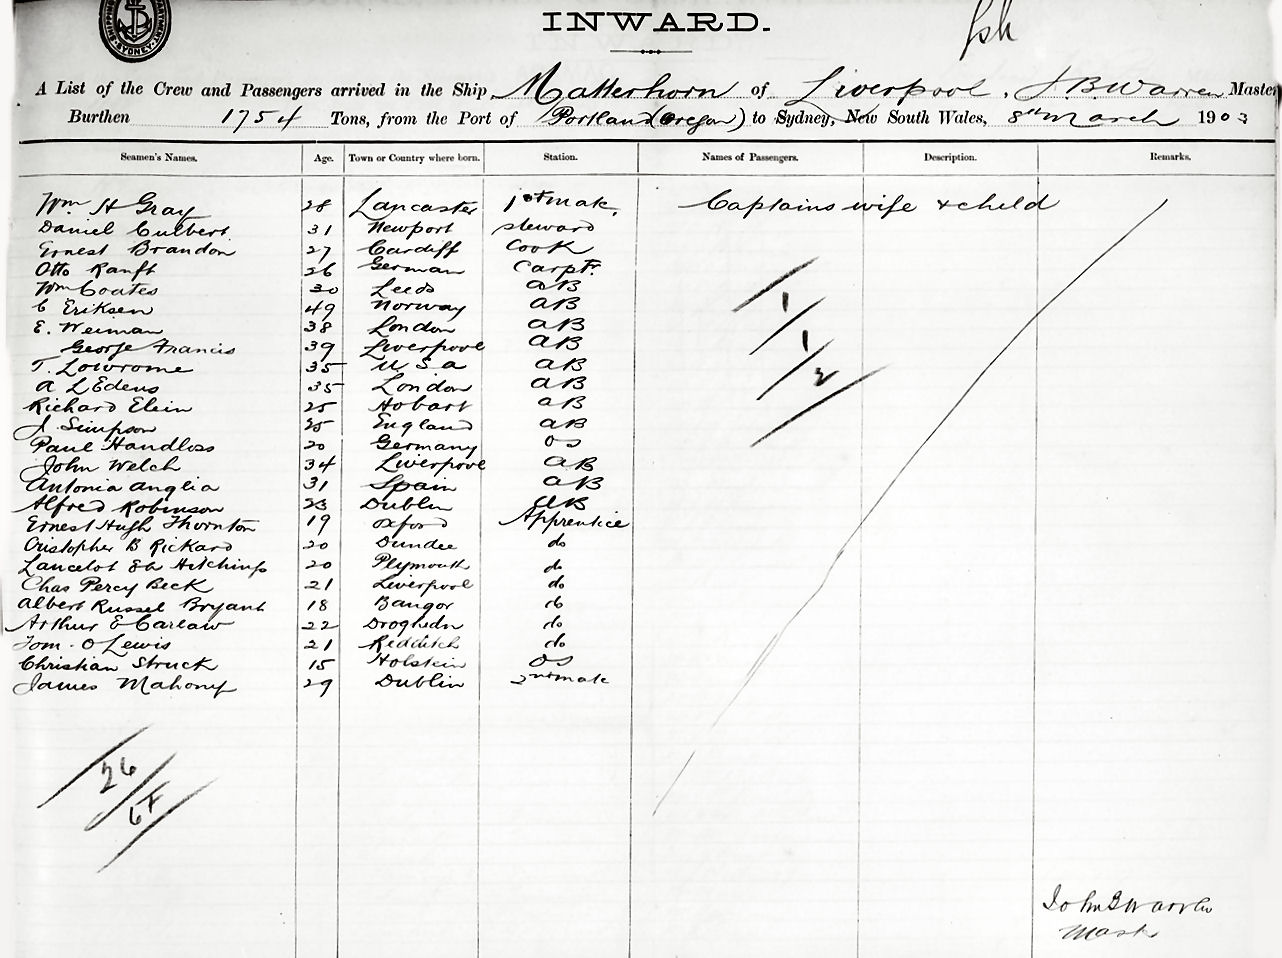 SYDNEY
INWARD.
A List of the Crew and Passengers arrived in the Ship Matterhorn of Liverpool, J.B. Warren Master
Burthen 1754 Tons, from the Port of Portland (Oregon) to Sydney, New South Wales, 8th March 1903
Seamen's Names. Age. Town or Country where born. Station. Names of Passengers. Description. Remarks.
Wm H Gray 28 Lancaster 1st mate Captains wife & child
Daniel Culbert 31 Newport steward
Ernest Brandon 27 Cardiff Cook
Otto Ranft 26 German Carptr.
Wm Coates 30 Leeds AB
C Eriksen 49 Norway AB
E. Weiman 38 London AB
George Francis 39 Liverpool AB
T. Lowrome 35 U S A AB
A L Edens 35 London AB
Richard Elein 25 Hobart AB
J. Simpson 25 England AB
Paul Handloss 20 Germany OS
John Welch 34 Liverpool AB
Antonia Anglia 31 Spain AB
Alfred Robinson 23 Dublin AB
Ernest Hugh Thornton 19 Oxford Apprentice
Cristopher B Rickard 20 Dundee do
Lancelot Hitchings 20 Plymouth do
Chas Percy Beck 21 Liverpool do
Albert Russel Bryant 18 Bangor do
Arthur E Carlaw 22 Drogheda do
Tom. O Lewis 21 Redditch do
Christian Struck 15 Holstein OS
James Mahony 29 Dublin 2nd mate
1
1
2
26
6F
John B Warren
Master